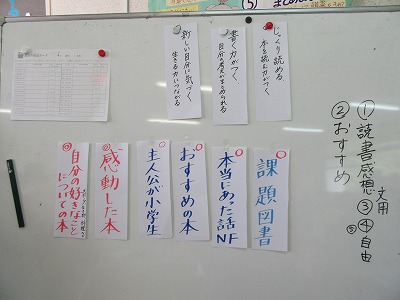 じっくり読める
本を読む力がつく
書く力がつく
自分の考えがまとめられる
新しい自分に気づく
生きる力につながる
①読書感想文用
③④自由
⑤
②おすすめ
○
課題図書
○
本当にあった話
NF
○
おすすめの本
○
主人公が小学生
感動した本
自分の好きなこと
についての本